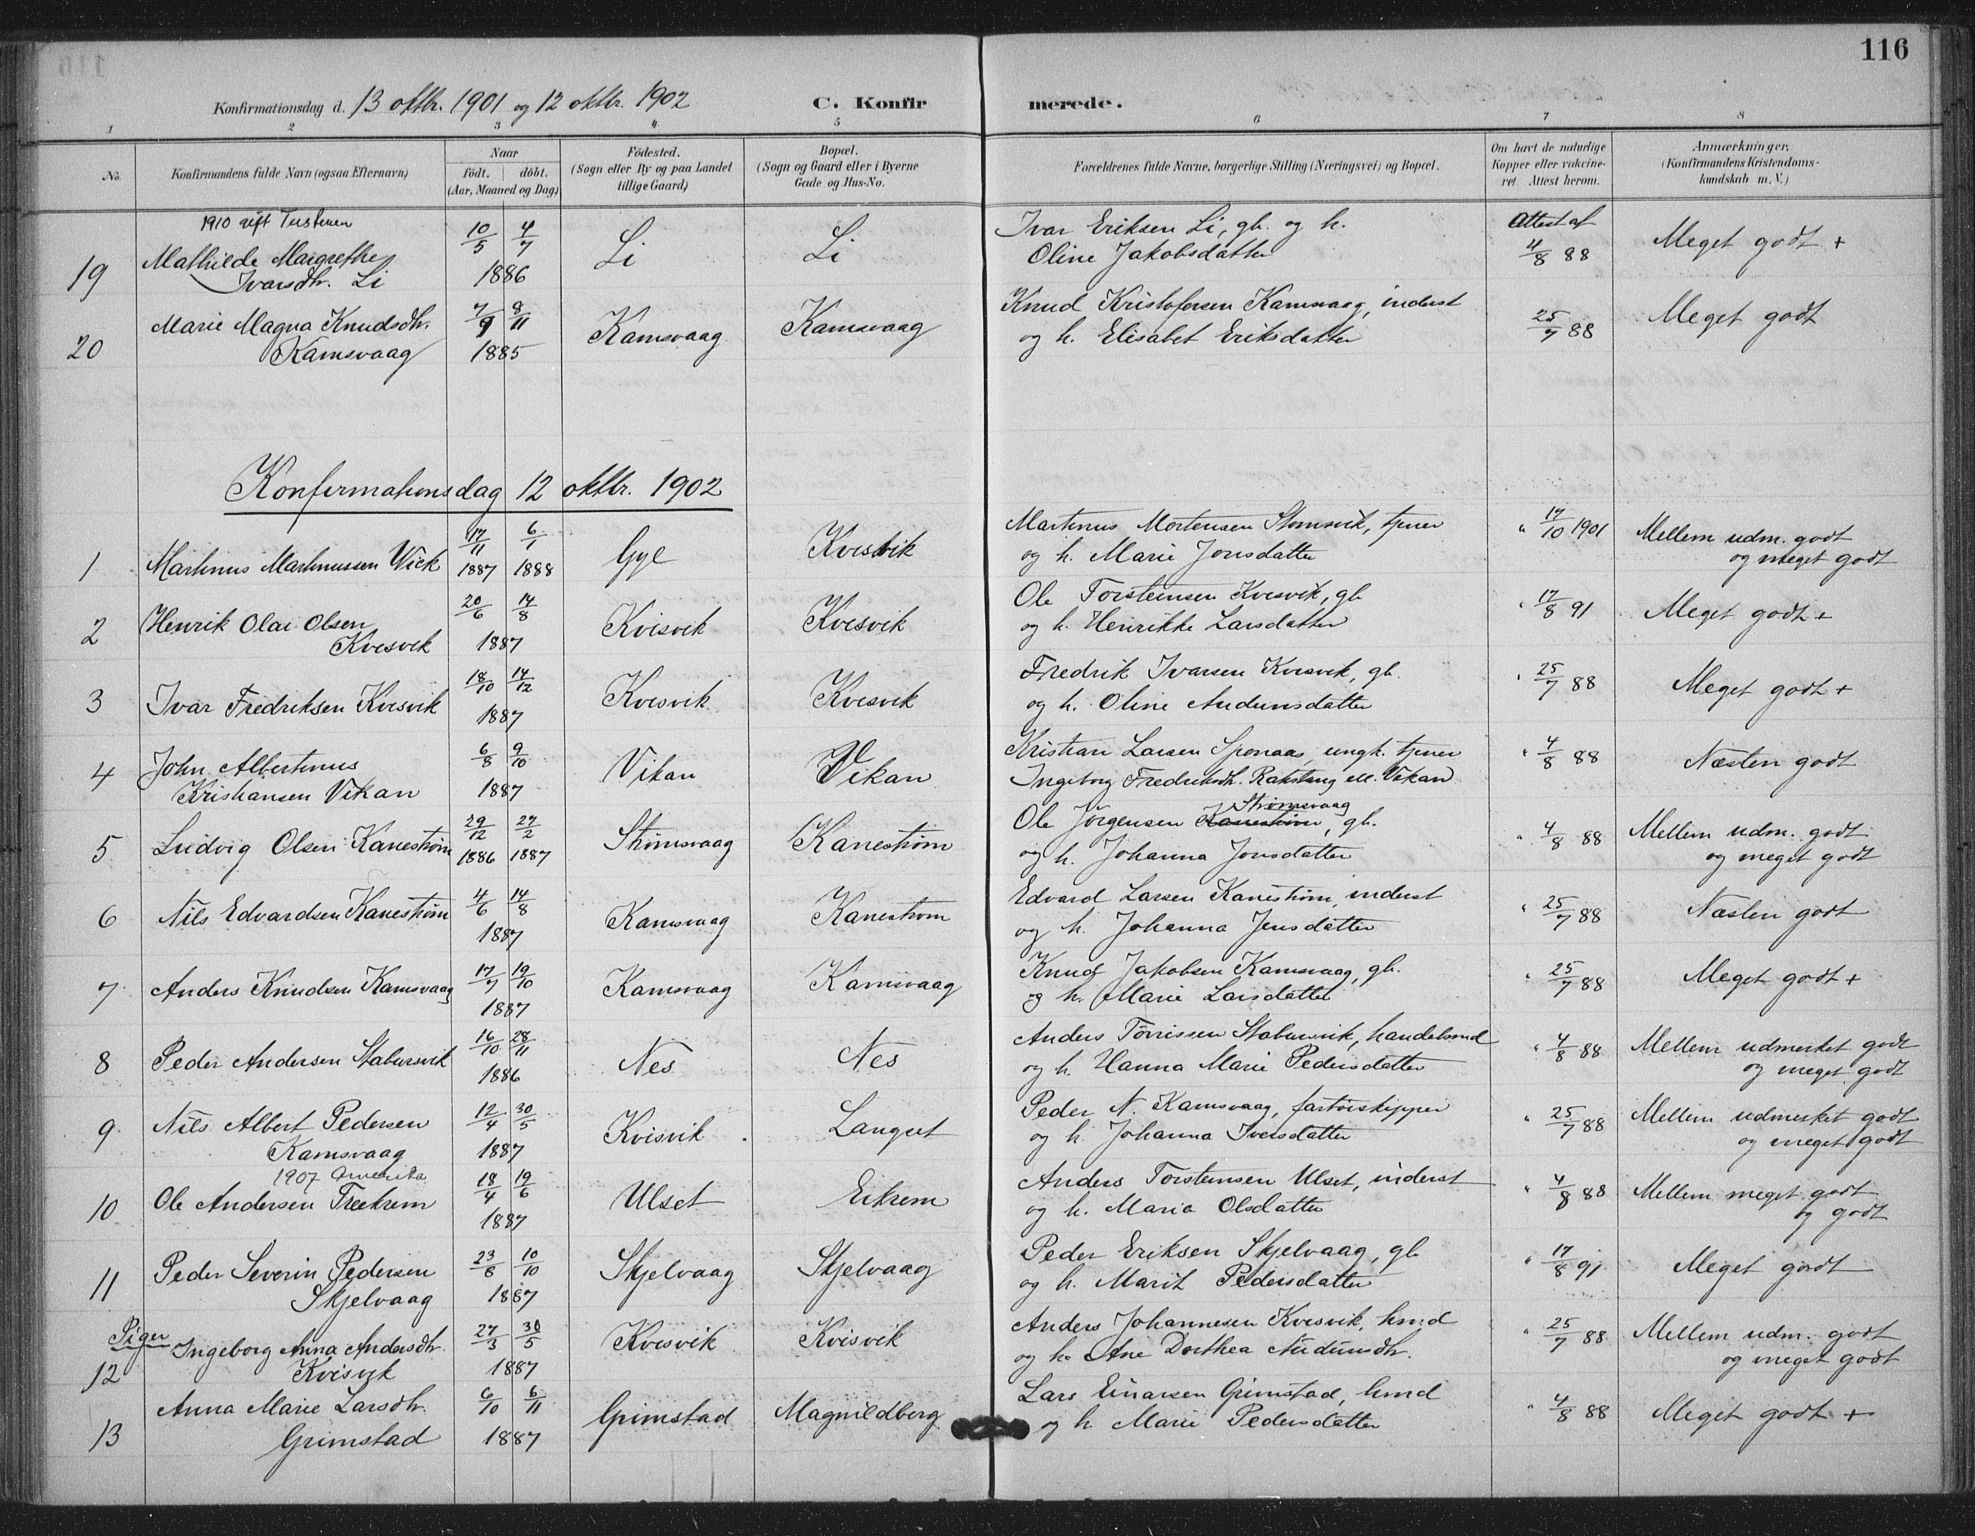 116
Konfirmationsdag d. 13 oktbr. 1901 og 12 oktbr. 1902 C. Konfirmerede.
1 2 3 4 5 6 7 8
No. Konfirmandens fulde Navn (ogsaa Efternavn) Naar født. døbt. (Aar, Maaned og Dag) Fødested. (Sogn eller By og paa Landet tillige Gaard) Bopæl. (Sogn og Gaard eller i Byerne Gade og Hus-No. Forældrenes fulde Navne, borgerlige Stilling (Næringsvei) og Bopæl. Om havt de naturlige Kopper eller vakcineret. Attest herom. Anmærkninger. (Konfirmandens Kristendomskundskab m. V.)
1910 gift Tustnen
19 Mathilde Margrethe Ivarsdtr. Li 10/5 4/7 1886 Li Li Ivar Eriksen Li, gb. og h. Oline Jakobsdatter Attest af 4/8 88 Meget godt +
20 Marie Magna Knudsdtr. Kamsvaag 7/9 8/11 1885 Kamsvaag Kamsvaag Knud Kristofersen Kamsvaag, inderst og h. Elisabet Eriksdatter 25/7 88 Meget godt
Konfirmationsdag 12 oktbr. 1902
1 Martinus Martinussen Wick 17/11 1887 6/1 1888 Gyl Kvisvik Martinus Mortensen Stomsvik, tjener og h. Marie Jonsdatter " 17/10 1901 Mellem udm. godt og meget godt
2 Henrik Olai Olsen Kvisvik 20/6 14/8 1887 Kvisvik Kvisvik Ole Torsteinsen Kvisvik, gb. og h. Henrikke Larsdatter " 17/8 91 Meget godt +
3 Ivar Fredriksen Kvisvik 18/10 14/12 1887 Kvisvik Kvisvik Fredrik Ivarsen Kvisvik, gb. og h. Oline Audunsdatter " 25/7 88 Meget godt +
4 John Albertinus Kristiansen Vikan 6/8 9/10 1887 Vikan Vikan Kristian Larsen Sponaas, ungk. tjener Ingeborg Fredriksdtr. Rakstang ell. Vikan " 4/8 88 Næsten godt
5 Ludvig Olsen Kanestrøm 29/12 1886 27/2 1887 Strømsvaag Kanestrøm Ole Jørgensen Kanestrøm Strømsvaag, gb. og h. Johanna Jonsdatter " 4/8 88 Mellem udm. godt og meget godt
6 Nils Edvardsen Kanestrøm 4/6 14/8 1887 Kamsvaag Kanestrøm Edvard Larsen Kanestrøm, inderst og h. Johanna Jensdatter " 25/7 88 Næsten godt
7 Anders Knudsen Kamsvaag 17/7 19/10 1887 Kamsvaag Kamsvaag Knud Jakobsen Kamsvaag, gb. og h. Marie Larsdatter " 25/7 88 Meget godt +
8 Peder Andersen Stabursvik 16/10 28/11 1886 Nes Nes Anders Tørrissen Stabursvik, handelsmd og h. Hanna Marie Pedersdatter " 4/8 88 Mellem udmerket godt og meget godt
9 Nils Albert Pedersen Kamsvaag 12/4 30/5 1887 Kvisvik Langset Peder N. Kamsvaag, fartøiskipper og h. Johanna Iversdatter " 25/7 88 Mellem udmerket godt og meget godt
1907 Amerika
10 Ole Andersen Treekrem 18/4 19/6 1887 Ulset Eikrem Anders Torsteinsen Ulset, inderst og h. Maria Olsdatter " 4/8 88 Mellem meget godt og godt
11 Peder Severin Pedersen Skjelvaag 23/8 10/10 1887 Skjelvaag Skjelvaag Peder Eriksen Skjelvaag, gb. og h. Marit Pedersdatter " 17/8 91 Meget godt
Piger
12 Ingeborg Anna Andersdtr. Kvisvik 27/3 30/5 1887 Kvisvik Kvisvik Anders Johannesen Kvisvik, hmd og h. Ane Dorthea Audunsdtr. " 25/7 88 Mellem udm. godt og meget godt
13 Anna Marie Larsdtr. Grimstad 6/10 6/11 1887 Grimstad Magnildberg Lars Einarsen Grimstad, hmd og h. Marie Pedersdatter " 4/8 88 Meget godt +